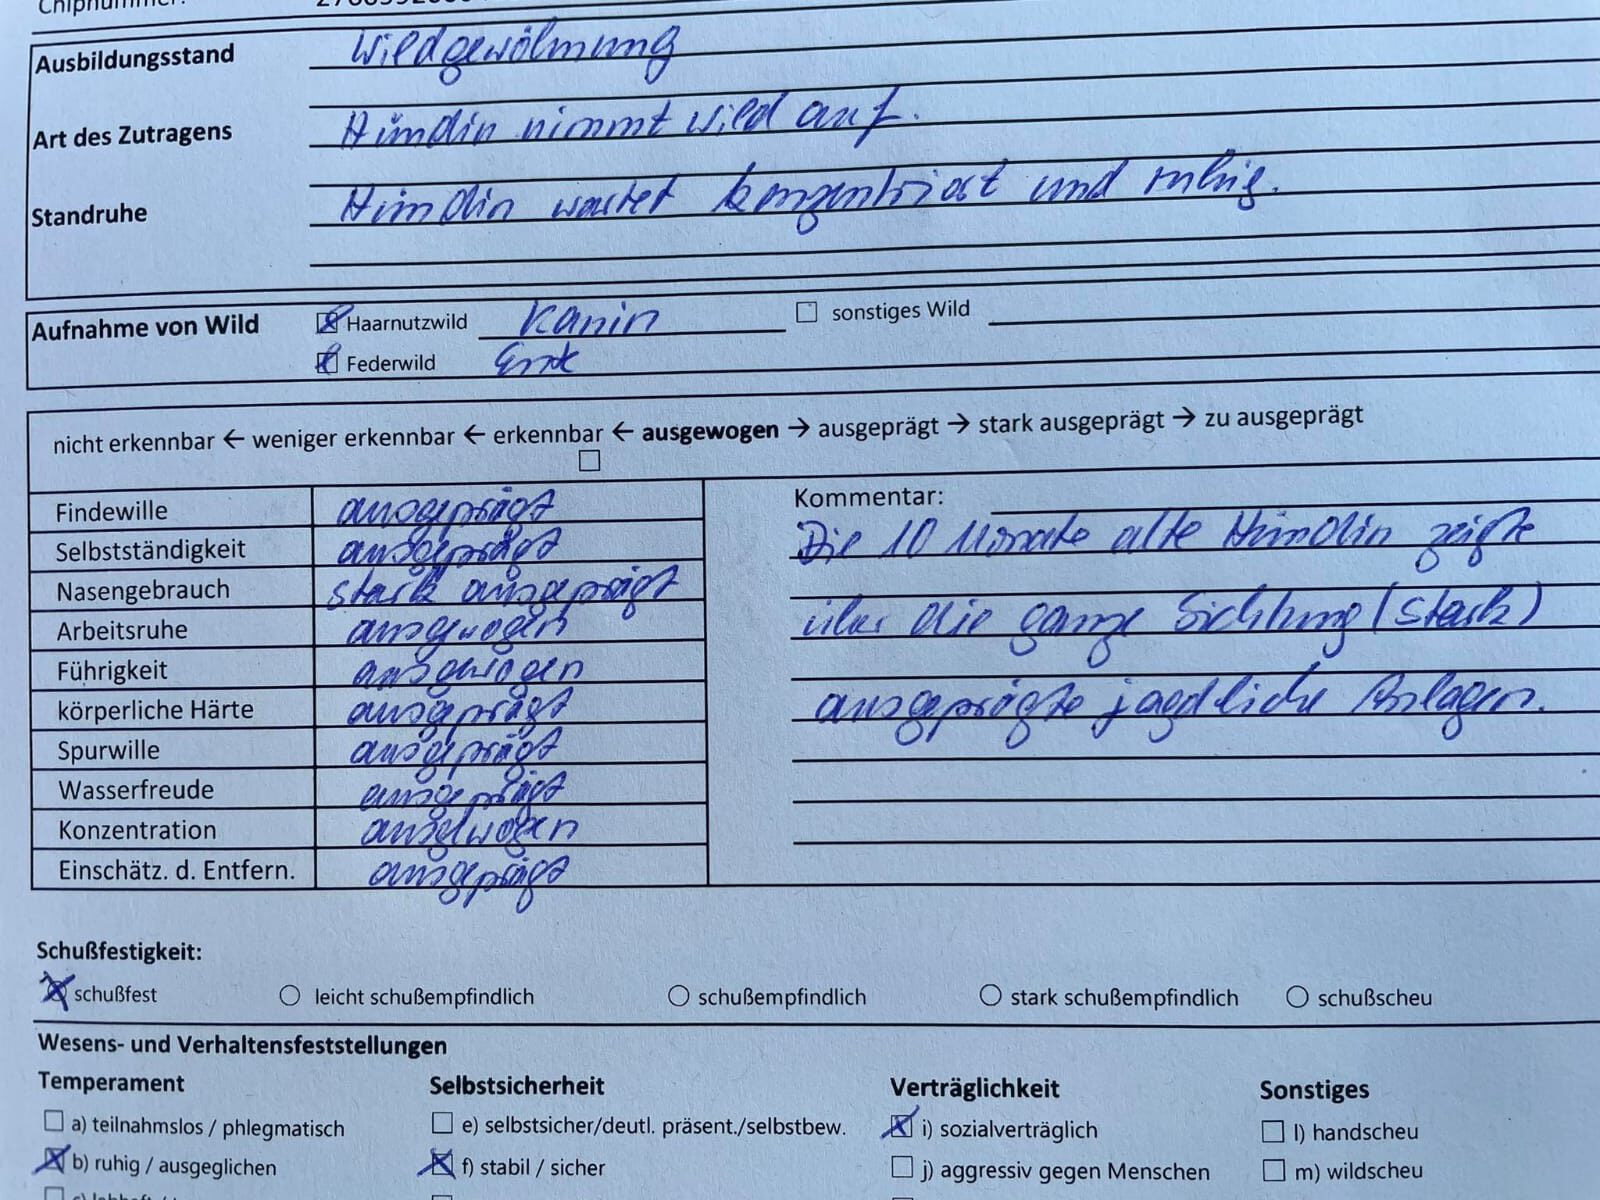 Chipnummer:
Ausbildungsstand Wildgewöhnung
Art des Zutragens Hündin nimmt Wild auf.
Standruhe Hündin wartet konzentriert und ruhig.
Aufnahme von Wild ☒ Haarnutzwild Kanin ☐ sonstiges Wild
☒ Federwild Ente
nicht erkennbar ← weniger erkennbar ← erkennbar ← ausgewogen → ausgeprägt → stark ausgeprägt → zu ausgeprägt
☐
Findewille ausgeprägt
Selbstständigkeit ausgeprägt
Nasengebrauch stark ausgeprägt
Arbeitsruhe ausgewogen
Führigkeit ausgewogen
körperliche Härte ausgeprägt
Spurwille ausgeprägt
Wasserfreude ausgeprägt
Konzentration ausgewogen
Einschätz. d. Entfern. ausgeprägt
Kommentar:
Die 10 Monate alte Hündin zeigte
über die ganze Sichtung (stark)
ausgeprägte jagdliche Anlagen.
Schußfestigkeit:
☒ schußfest ○ leicht schußempfindlich ○ schußempfindlich ○ stark schußempfindlich ○ schußscheu
Wesens- und Verhaltensfeststellungen
Temperament Selbstsicherheit Verträglichkeit Sonstiges
☐ a) teilnahmslos / phlegmatisch ☐ e) selbstsicher/deutl. präsent./selbstbew. ☒ i) sozialverträglich ☐ l) handscheu
☒ b) ruhig / ausgeglichen ☒ f) stabil / sicher ☐ j) aggressiv gegen Menschen ☐ m) wildscheu